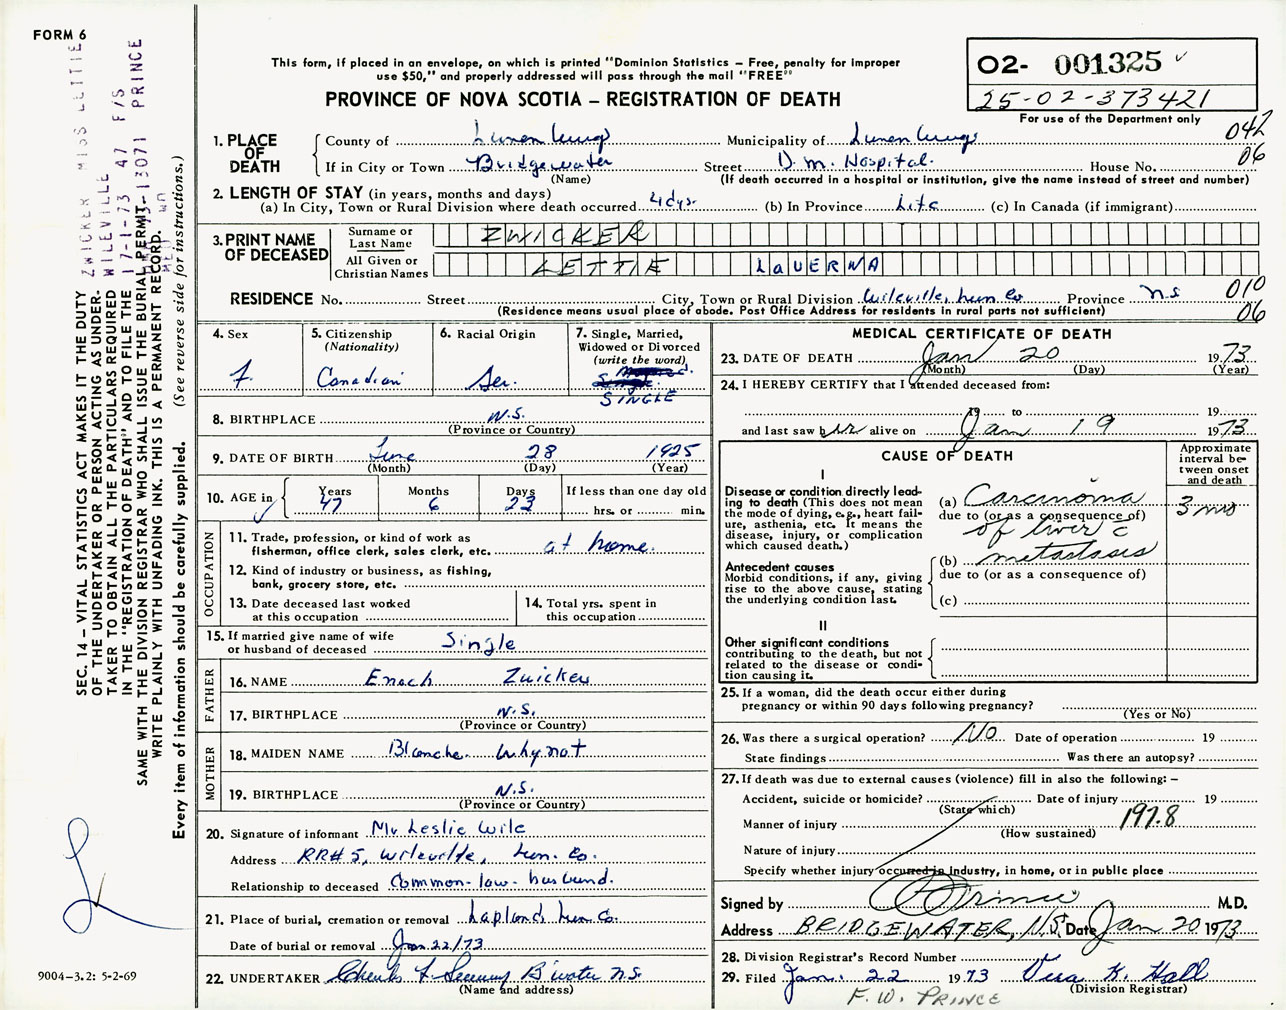 FORM 6
This form, if placed in an envelope, on which is printed "Dominion Statistics – Free, penalty for improper
use $50," and properly addressed will pass through the mail "FREE"
PROVINCE OF NOVA SCOTIA – REGISTRATION OF DEATH
O2- 001325
25-02-373421
For use of the Department only
1. PLACE OF DEATH
County of Lunenburg Municipality of Lunenburg 042
If in City or Town Bridgewater Street D.M. Hospital. House No. 06
(Name) (If death occurred in a hospital or institution, give the name instead of street and number)
2. LENGTH OF STAY (in years, months and days)
(a) In City, Town or Rural Division where death occurred 4 dys. (b) In Province Life (c) In Canada (if immigrant)
3. PRINT NAME OF DECEASED
Surname or Last Name ZWICKER
All Given or Christian Names LETTIE LaVERNA
RESIDENCE No. Street City, Town or Rural Division Wileville, Lun Co Province N.S 010
(Residence means usual place of abode. Post Office Address for residents in rural parts not sufficient) 06
4. Sex F.
5. Citizenship (Nationality) Canadian
6. Racial Origin Ger.
7. Single, Married, Widowed or Divorced (write the word) SINGLE
8. BIRTHPLACE N.S.
(Province or Country)
9. DATE OF BIRTH June 28 1925
(Month) (Day) (Year)
10. AGE in Years 47 Months 6 Days 23 If less than one day old
hrs. or min.
OCCUPATION
11. Trade, profession, or kind of work as
fisherman, office clerk, sales clerk, etc. at home.
12. Kind of industry or business, as fishing,
bank, grocery store, etc.
13. Date deceased last worked
at this occupation
14. Total yrs. spent in
this occupation
15. If married give name of wife
or husband of deceased Single
FATHER
16. NAME Enoch Zwicker
17. BIRTHPLACE N.S.
(Province or Country)
MOTHER
18. MAIDEN NAME Blanche Whynot
19. BIRTHPLACE N.S.
(Province or Country)
20. Signature of informant Mr Leslie Wile
Address RR# 5, Wileville, Lun. Co.
Relationship to deceased Common-law-husband.
21. Place of burial, cremation or removal Lapland Lun Co.
Date of burial or removal Jan 22/73
22. UNDERTAKER B'water N.S.
(Name and address)
MEDICAL CERTIFICATE OF DEATH
23. DATE OF DEATH Jan 20 1973
(Month) (Day) (Year)
24. I HEREBY CERTIFY that I attended deceased from:
19 to 19
and last saw her alive on Jan 19 1973
CAUSE OF DEATH
Approximate interval between onset and death
I
Disease or condition directly leading to death (This does not mean
the mode of dying, e.g., heart failure, asthenia, etc. It means the
disease, injury, or complication
which caused death.)
(a) Carcinoma 3 mos
due to (or as a consequence of)
of liver c̄
(b) metastases
due to (or as a consequence of)
(c)
Antecedent causes
Morbid conditions, if any, giving
rise to the above cause, stating
the underlying condition last.
II
Other significant conditions
contributing to the death, but not
related to the disease or condition causing it.
25. If a woman, did the death occur either during
pregnancy or within 90 days following pregnancy?
(Yes or No)
26. Was there a surgical operation? No Date of operation 19
State findings Was there an autopsy?
27. If death was due to external causes (violence) fill in also the following: –
Accident, suicide or homicide? Date of injury 19
(State which)
Manner of injury 197.8
(How sustained)
Nature of injury
Specify whether injury occurred in Industry, in home, or in public place
Signed by Prince M.D.
Address BRIDGEWATER, N.S. Date Jan 20 1973
28. Division Registrar's Record Number
29. Filed Jan. 22 1973 Vera K. Hall
(Division Registrar)
F. W. PRINCE
9004-3.2: 5-2-69
ZWICKER MISS LETTIE
WILEVILLE 47 F/S
17-1-73
73-13071 PRINCE
SEC. 14 – VITAL STATISTICS ACT MAKES IT THE DUTY
OF THE UNDERTAKER OR PERSON ACTING AS UNDER-
TAKER TO OBTAIN ALL THE PARTICULARS REQUIRED
IN THE "REGISTRATION OF DEATH" AND TO FILE THE
SAME WITH THE DIVISION REGISTRAR WHO SHALL ISSUE THE BURIAL PERMIT.
WRITE PLAINLY WITH UNFADING INK. THIS IS A PERMANENT RECORD.
Every item of information should be carefully supplied. (See reverse side for instructions.)